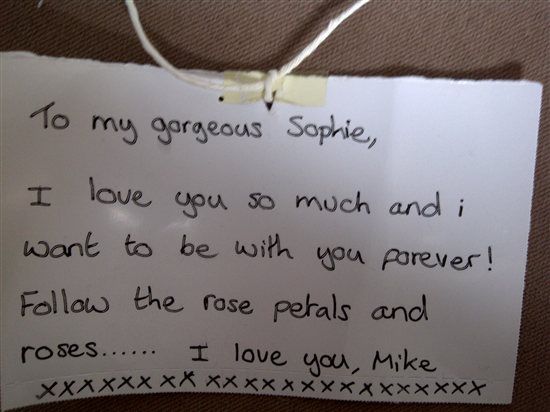 To my gorgeous Sophie,
I love you so much and i
want to be with you forever!
Follow the rose petals and
roses...... I love you, Mike
xxxxxxx xx xxxxxxxxxxxxxxxxx